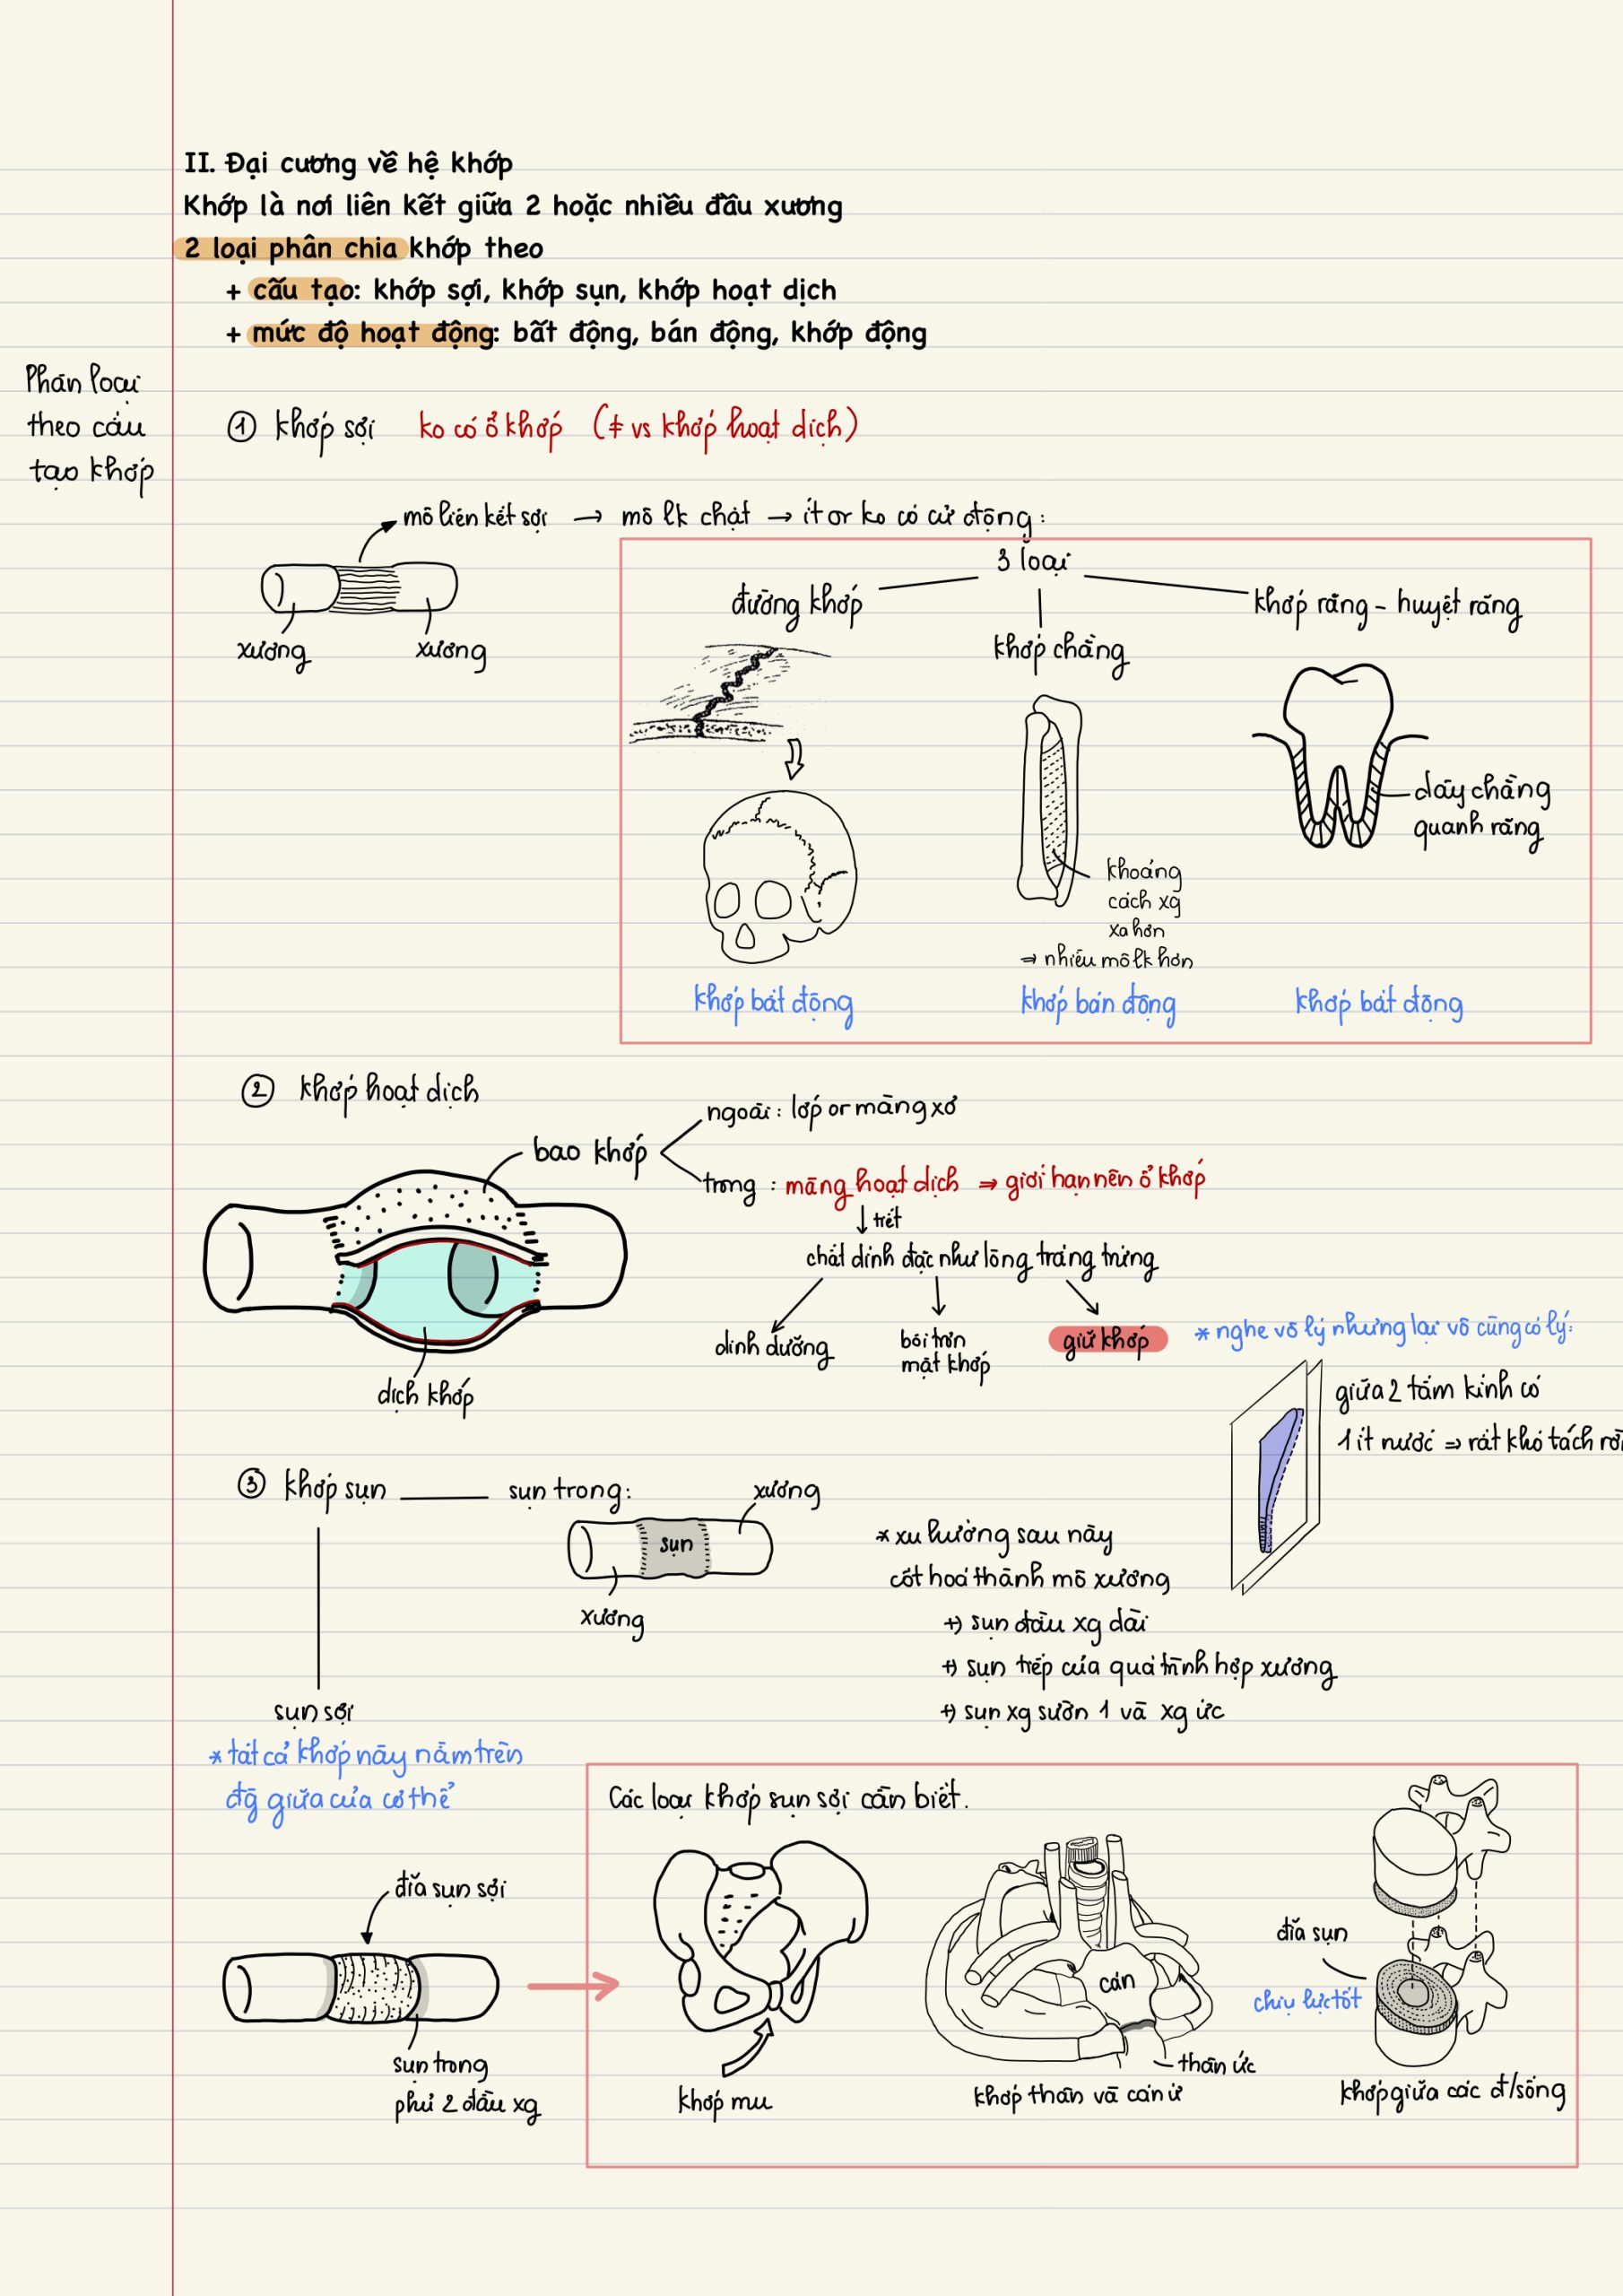 II. Đại cương về hệ khớp
Khớp là nơi liên kết giữa 2 hoặc nhiều đầu xương
2 loại phân chia khớp theo
+ cấu tạo: khớp sợi, khớp sụn, khớp hoạt dịch
+ mức độ hoạt động: bất động, bán động, khớp động
Phân loại
theo cấu
tạo khớp
① khớp sợi ko có ổ khớp (≠ vs khớp hoạt dịch)
mô liên kết sợi → mô lk chặt → ít or ko có cử động:
xương
xương
3 loại
đường khớp
khớp chằng
khớp răng - huyệt răng
khoảng
cách xg
xa hơn
⇒ nhiều mô lk hơn
dây chằng
quanh răng
khớp bất động
khớp bán động
khớp bất động
② khớp hoạt dịch
bao khớp
ngoài: lớp or màng xơ
trong: màng hoạt dịch ⇒ giới hạn nên ổ khớp
↓ tiết
chất dính đặc như lòng trắng trứng
dinh dưỡng
bôi trơn
mặt khớp
giữ khớp
* nghe vô lý nhưng lại vô cùng có lý:
giữa 2 tấm kính có
1 ít nước ⇒ rất khó tách rời
dịch khớp
③ khớp sụn
sụn trong:
xương
sụn
xương
* xu hướng sau này
cốt hoá thành mô xương
+) sụn đầu xg dài
+) sụn tiếp của quá trình hợp xương
+) sụn xg sườn 1 và xg ức
sụn sợi
* tất cả khớp này nằm trên
đg giữa của cơ thể
đĩa sụn sợi
sụn trong
phủ 2 đầu xg
Các loại khớp sụn sợi cần biết.
khớp mu
cán
thân ức
khớp thân và cán ứ
đĩa sụn
chịu lực tốt
khớp giữa các đ/sống